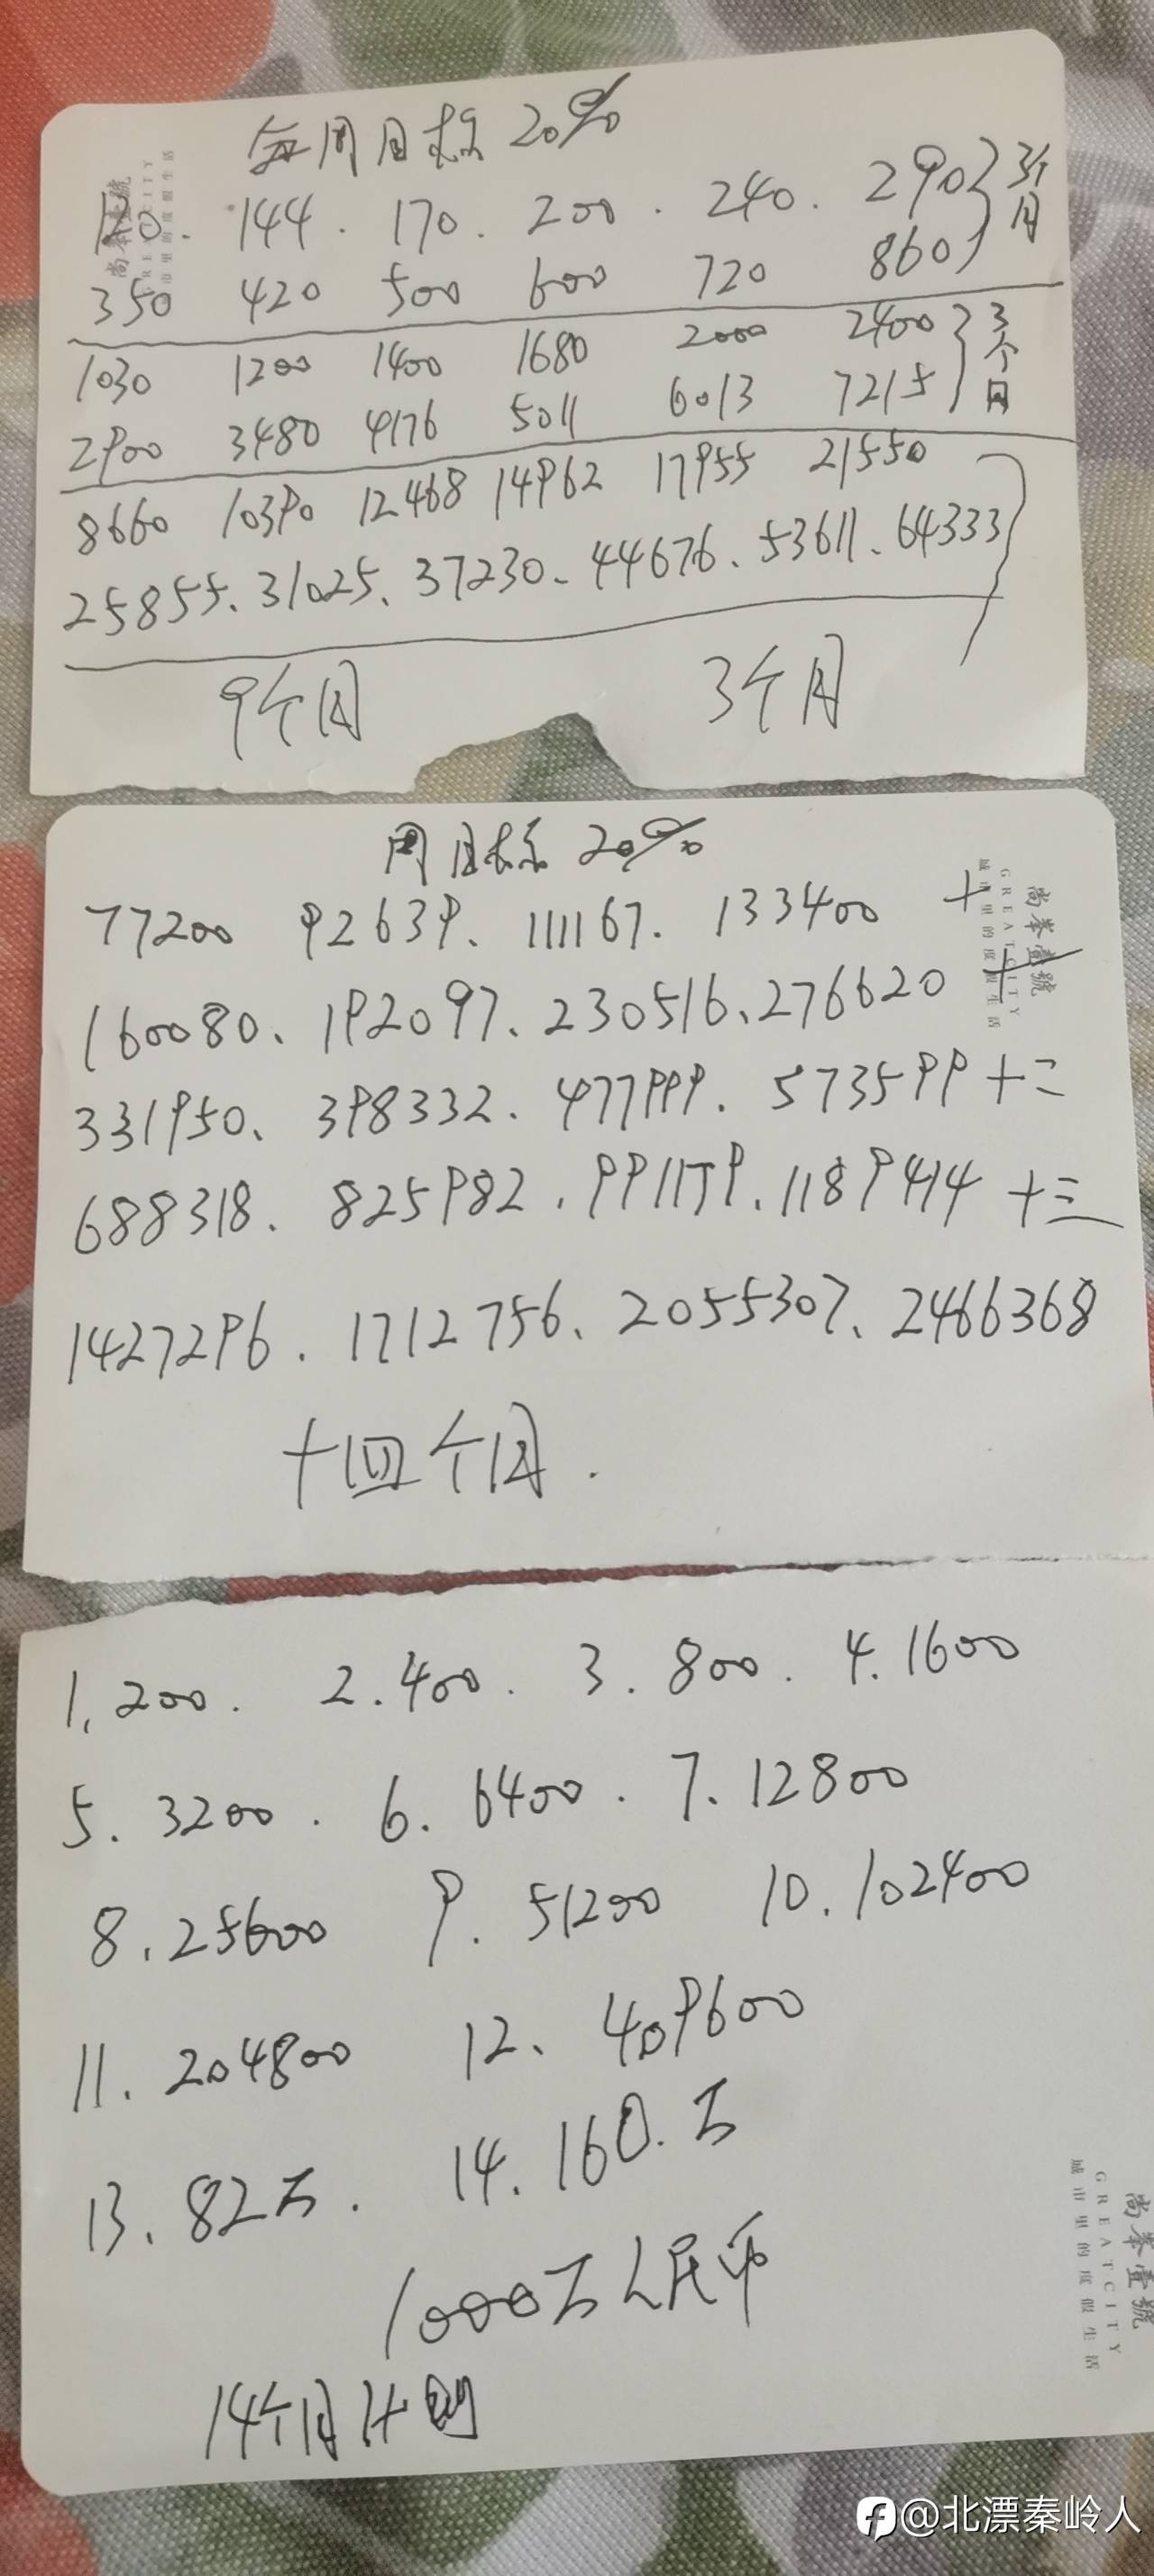 每周目标20%
120. 144. 170. 200. 240. 290 3个月
350 420 500 600 720 860
1030 1200 1400 1680 2000 2400 3个月
2900 3480 4176 5011 6013 7215
8660 10390 12468 14962 17955 21550
25855、31025、37230、44676、53611、64333
9个月 3个月
尚峯壹號
GREATCITY
城市里的度假生活
周目标20%
77200 92639、111167. 133400 十
160080、192097、230516、276620 十一
331950、398332、477999、573599 十二
688318、825982、991179、1189414 十三
1427296、1712756、2055307、2466368
十四个月.
尚峯壹號
GREATCITY
城市里的度假生活
1.200. 2.400. 3.800. 4.1600
5.3200. 6.6400. 7.12800
8.25600 9.51200 10.102400
11.204800 12、409600
13、82万. 14.160.万
1000万人民币
14个月计划
尚峯壹號
GREATCITY
城市里的度假生活
@北漂秦岭人